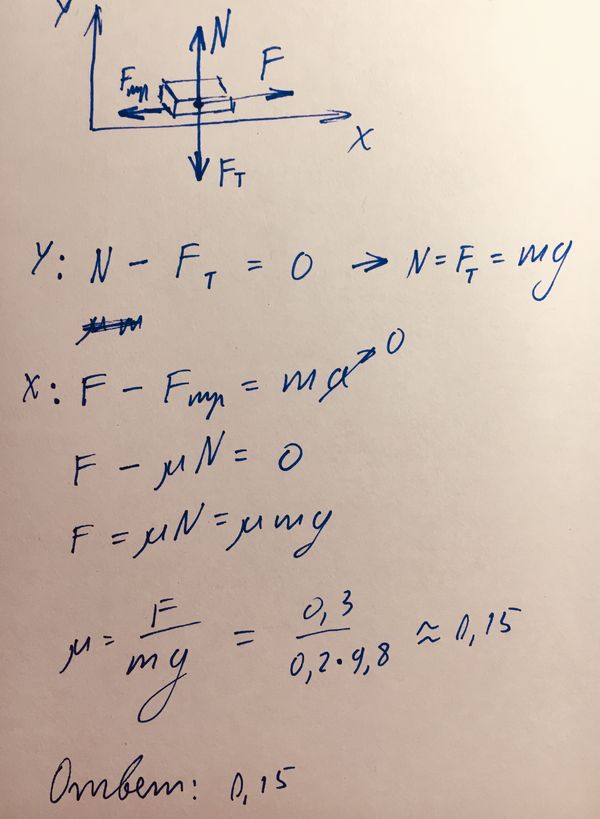 Y
N
F
Fтр
X
Fт
Y: N - Fт = 0 → N = Fт = mg
X: F - Fтр = ma → 0
F - μN = 0
F = μN = μmg
μ = F/mg = 0,3/0,2·9,8 ≈ 0,15
Ответ: 0,15